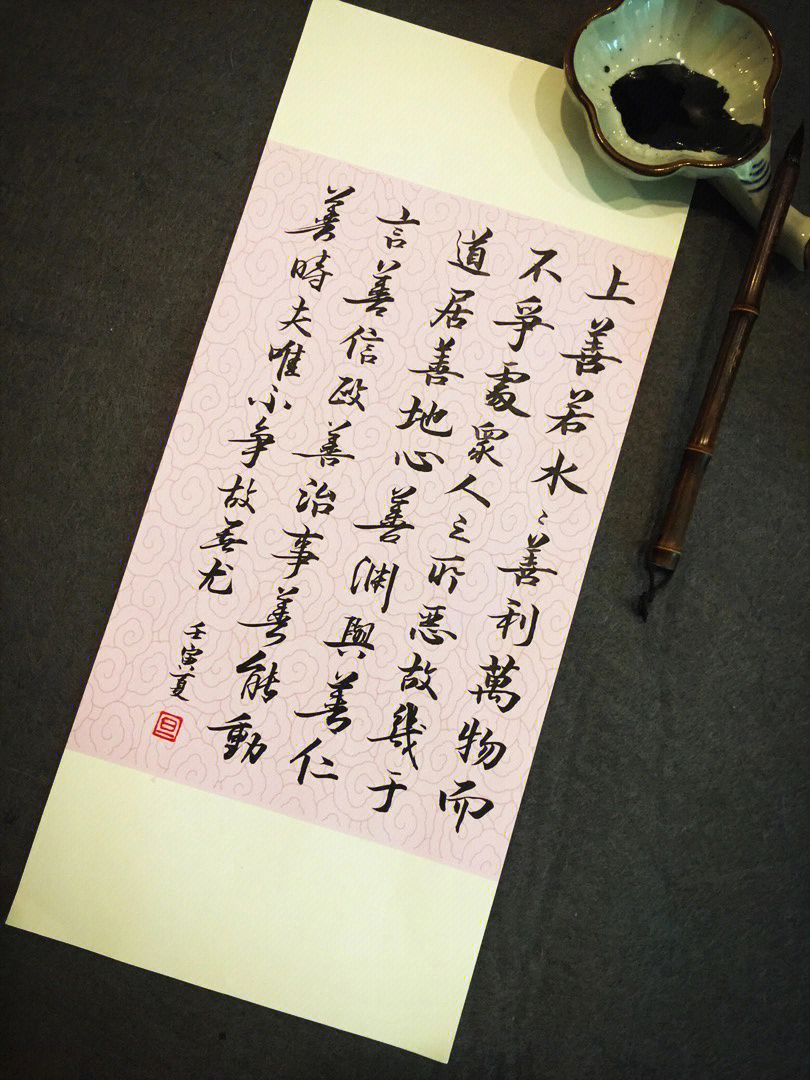 上善若水〻善利萬物而
不爭處衆人之所惡故幾于
道居善地心善淵與善仁
言善信政善治事善能動
善時夫唯不争故無尤
壬寅夏
旦